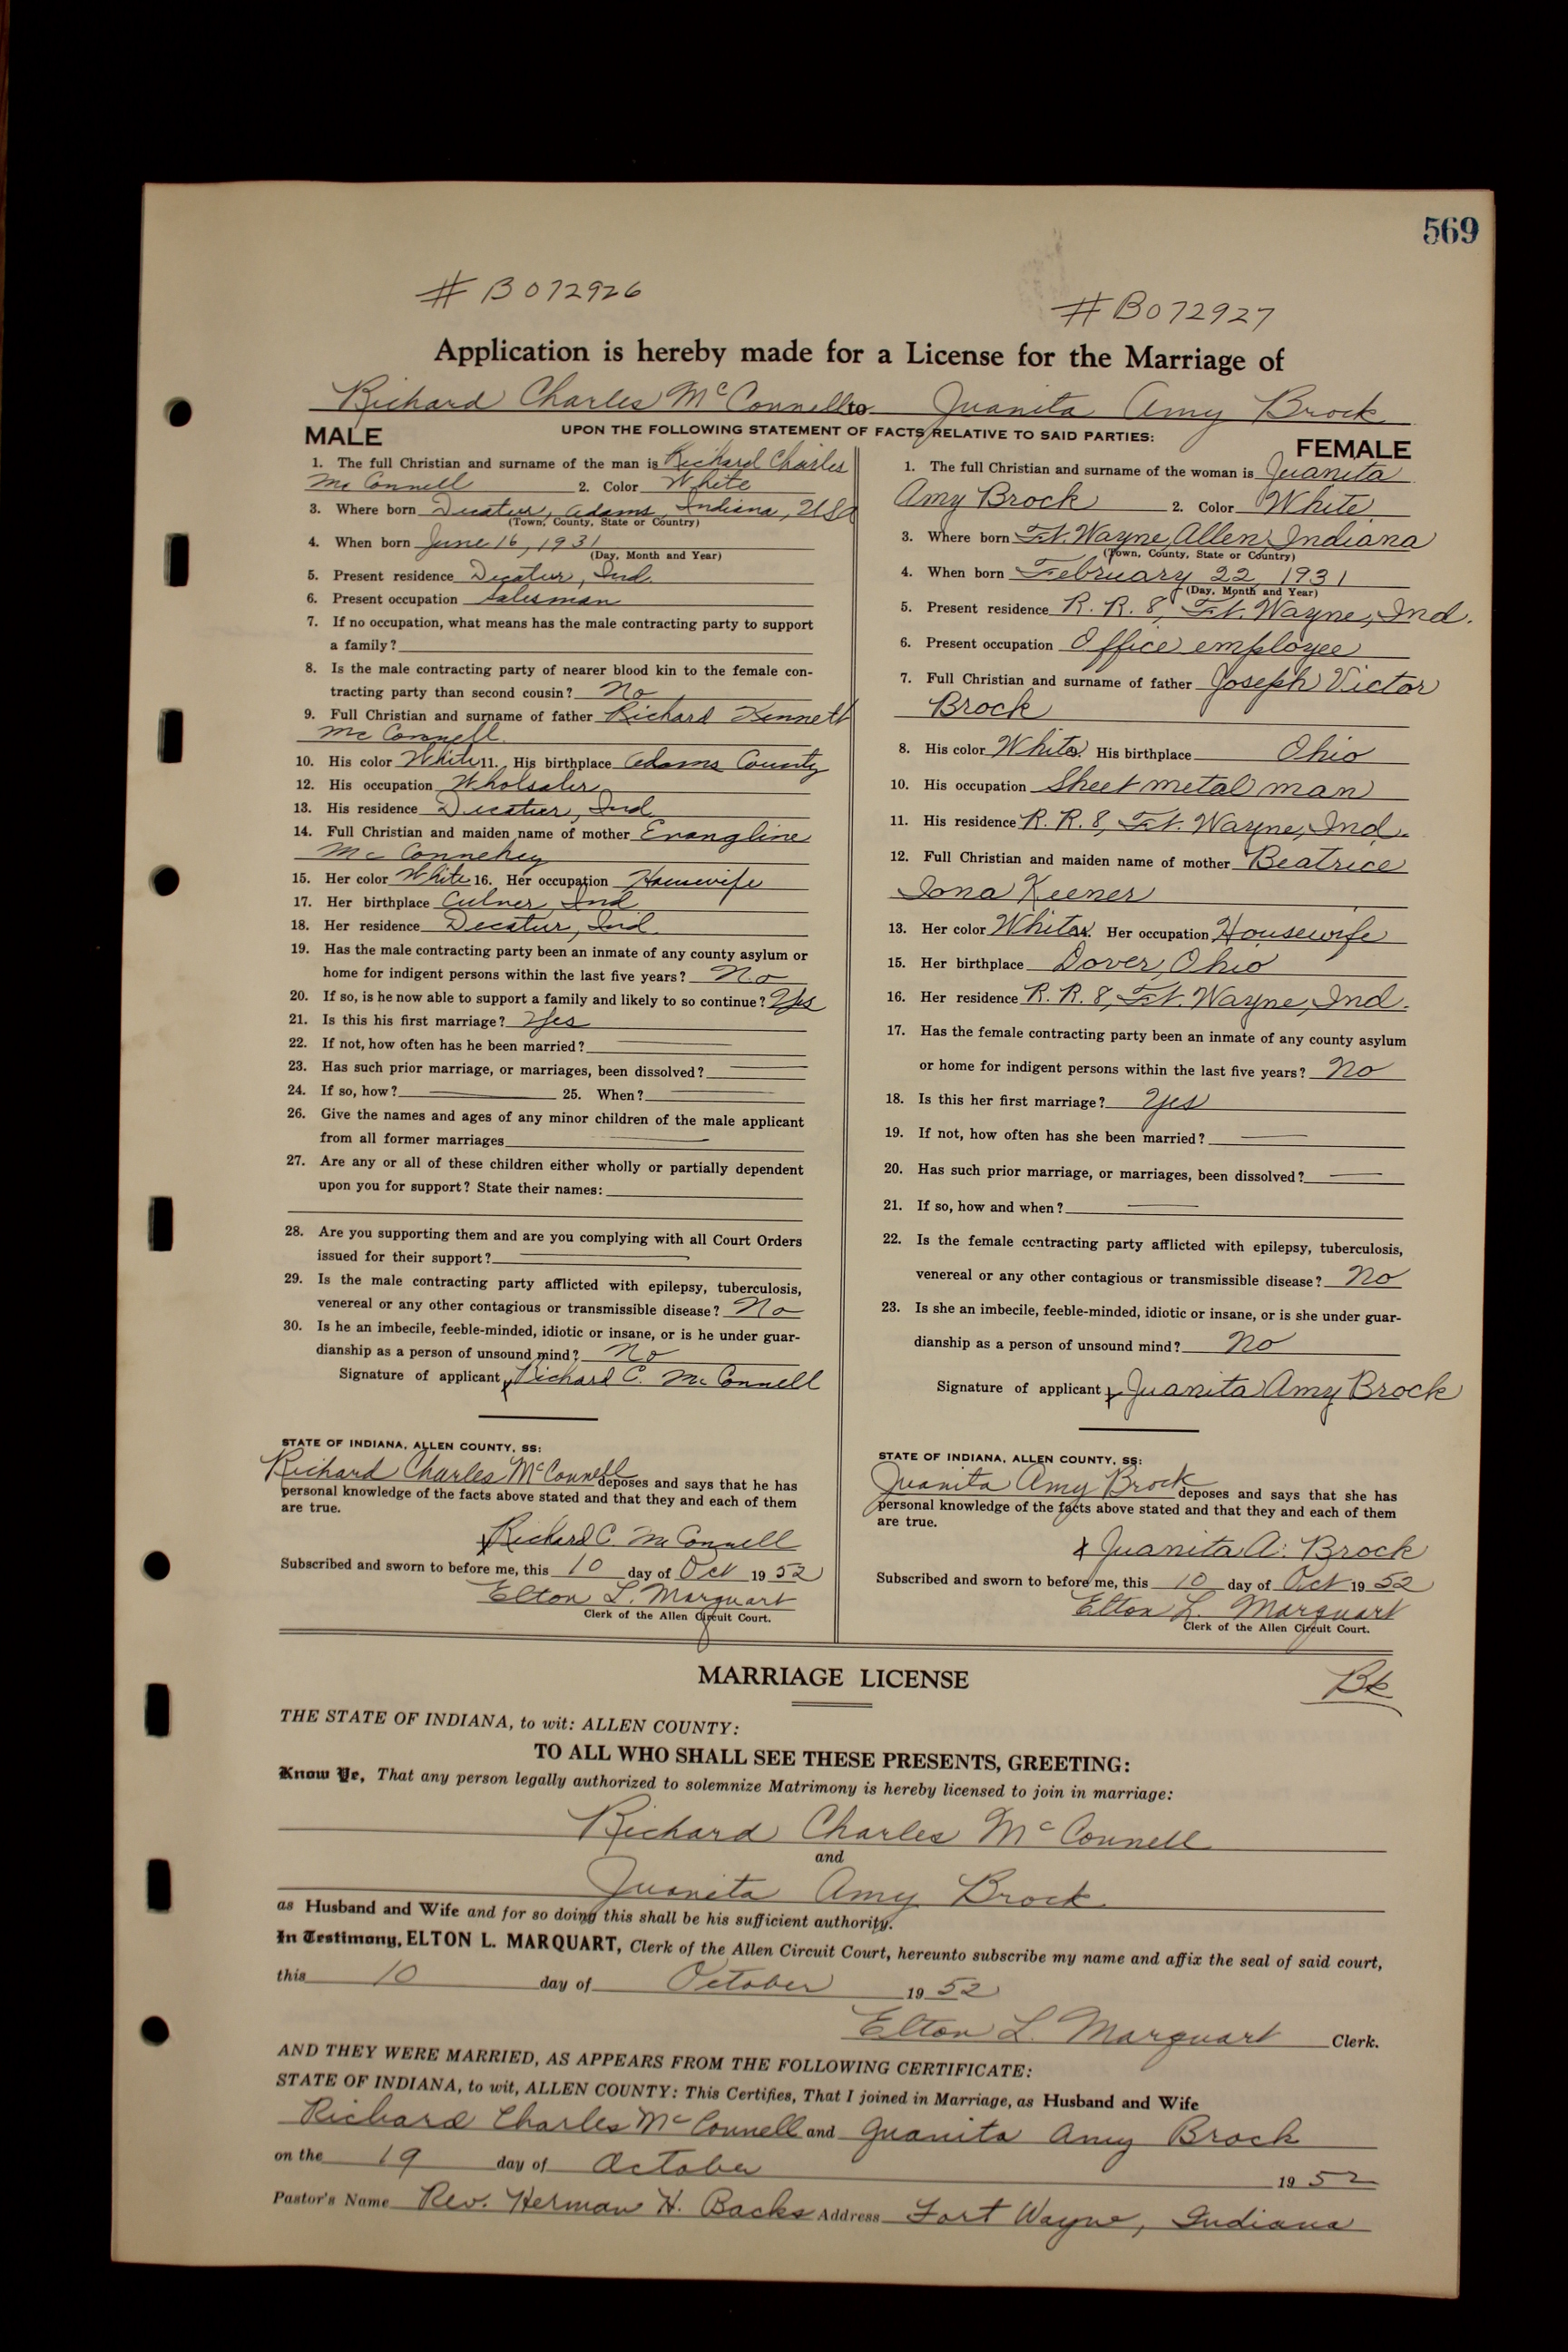 569
# B072926
# B072927
Application is hereby made for a License for the Marriage of
Richard Charles McConnell to Juanita Amy Brock
UPON THE FOLLOWING STATEMENT OF FACTS RELATIVE TO SAID PARTIES:
MALE
1. The full Christian and surname of the man is Richard Charles
McConnell 2. Color White
3. Where born Decatur, Adams, Indiana, USA
(Town, County, State or Country)
4. When born June 16, 1931
(Day, Month and Year)
5. Present residence Decatur, Ind.
6. Present occupation Salesman
7. If no occupation, what means has the male contracting party to support
a family?
8. Is the male contracting party of nearer blood kin to the female con-
tracting party than second cousin? No
9. Full Christian and surname of father Richard Kenneth
McConnell.
10. His color White 11. His birthplace Adams County
12. His occupation Wholsaler
13. His residence Decatur, Ind.
14. Full Christian and maiden name of mother Evangline
McConnehey
15. Her color White 16. Her occupation Housewife
17. Her birthplace Culver, Ind
18. Her residence Decatur, Ind.
19. Has the male contracting party been an inmate of any county asylum or
home for indigent persons within the last five years? No
20. If so, is he now able to support a family and likely to so continue? Yes
21. Is this his first marriage? Yes
22. If not, how often has he been married?
23. Has such prior marriage, or marriages, been dissolved?
24. If so, how? 25. When?
26. Give the names and ages of any minor children of the male applicant
from all former marriages
27. Are any or all of these children either wholly or partially dependent
upon you for support? State their names:
28. Are you supporting them and are you complying with all Court Orders
issued for their support?
29. Is the male contracting party afflicted with epilepsy, tuberculosis,
venereal or any other contagious or transmissible disease? No
30. Is he an imbecile, feeble-minded, idiotic or insane, or is he under guar-
dianship as a person of unsound mind? No
Signature of applicant x Richard C. McConnell
STATE OF INDIANA, ALLEN COUNTY, SS:
Richard Charles McConnell deposes and says that he has
personal knowledge of the facts above stated and that they and each of them
are true.
x Richard C. McConnell
Subscribed and sworn to before me, this 10 day of Oct 1952
Elton L. Marquart
Clerk of the Allen Circuit Court.
FEMALE
1. The full Christian and surname of the woman is Juanita
Amy Brock 2. Color White
3. Where born Ft. Wayne, Allen, Indiana
(Town, County, State or Country)
4. When born February 22, 1931
(Day, Month and Year)
5. Present residence R. R. 8, Ft. Wayne, Ind.
6. Present occupation Office employee
7. Full Christian and surname of father Joseph Victor
Brock
8. His color White His birthplace Ohio
10. His occupation Sheet metal man
11. His residence R. R. 8, Ft. Wayne, Ind.
12. Full Christian and maiden name of mother Beatrice
Iona Keener
13. Her color White Her occupation Housewife
15. Her birthplace Dover, Ohio
16. Her residence R. R. 8, Ft. Wayne, Ind.
17. Has the female contracting party been an inmate of any county asylum
or home for indigent persons within the last five years? No
18. Is this her first marriage? Yes
19. If not, how often has she been married?
20. Has such prior marriage, or marriages, been dissolved?
21. If so, how and when?
22. Is the female contracting party afflicted with epilepsy, tuberculosis,
venereal or any other contagious or transmissible disease? No
23. Is she an imbecile, feeble-minded, idiotic or insane, or is she under guar-
dianship as a person of unsound mind? No
Signature of applicant x Juanita Amy Brock
STATE OF INDIANA, ALLEN COUNTY, SS:
Juanita Amy Brock deposes and says that she has
personal knowledge of the facts above stated and that they and each of them
are true.
x Juanita A. Brock
Subscribed and sworn to before me, this 10 day of Oct 1952
Elton L. Marquart
Clerk of the Allen Circuit Court.
MARRIAGE LICENSE
THE STATE OF INDIANA, to wit: ALLEN COUNTY:
TO ALL WHO SHALL SEE THESE PRESENTS, GREETING:
Know Ye, That any person legally authorized to solemnize Matrimony is hereby licensed to join in marriage:
Richard Charles McConnell
and
Juanita Amy Brock
as Husband and Wife and for so doing this shall be his sufficient authority.
In Testimony, ELTON L. MARQUART, Clerk of the Allen Circuit Court, hereunto subscribe my name and affix the seal of said court,
this 10 day of October 1952
Elton L. Marquart Clerk.
AND THEY WERE MARRIED, AS APPEARS FROM THE FOLLOWING CERTIFICATE:
STATE OF INDIANA, to wit, ALLEN COUNTY: This Certifies, That I joined in Marriage, as Husband and Wife
Richard Charles McConnell and Juanita Amy Brock
on the 19 day of October 1952
Pastor's Name Rev. Herman H. Backs Address Fort Wayne, Indiana